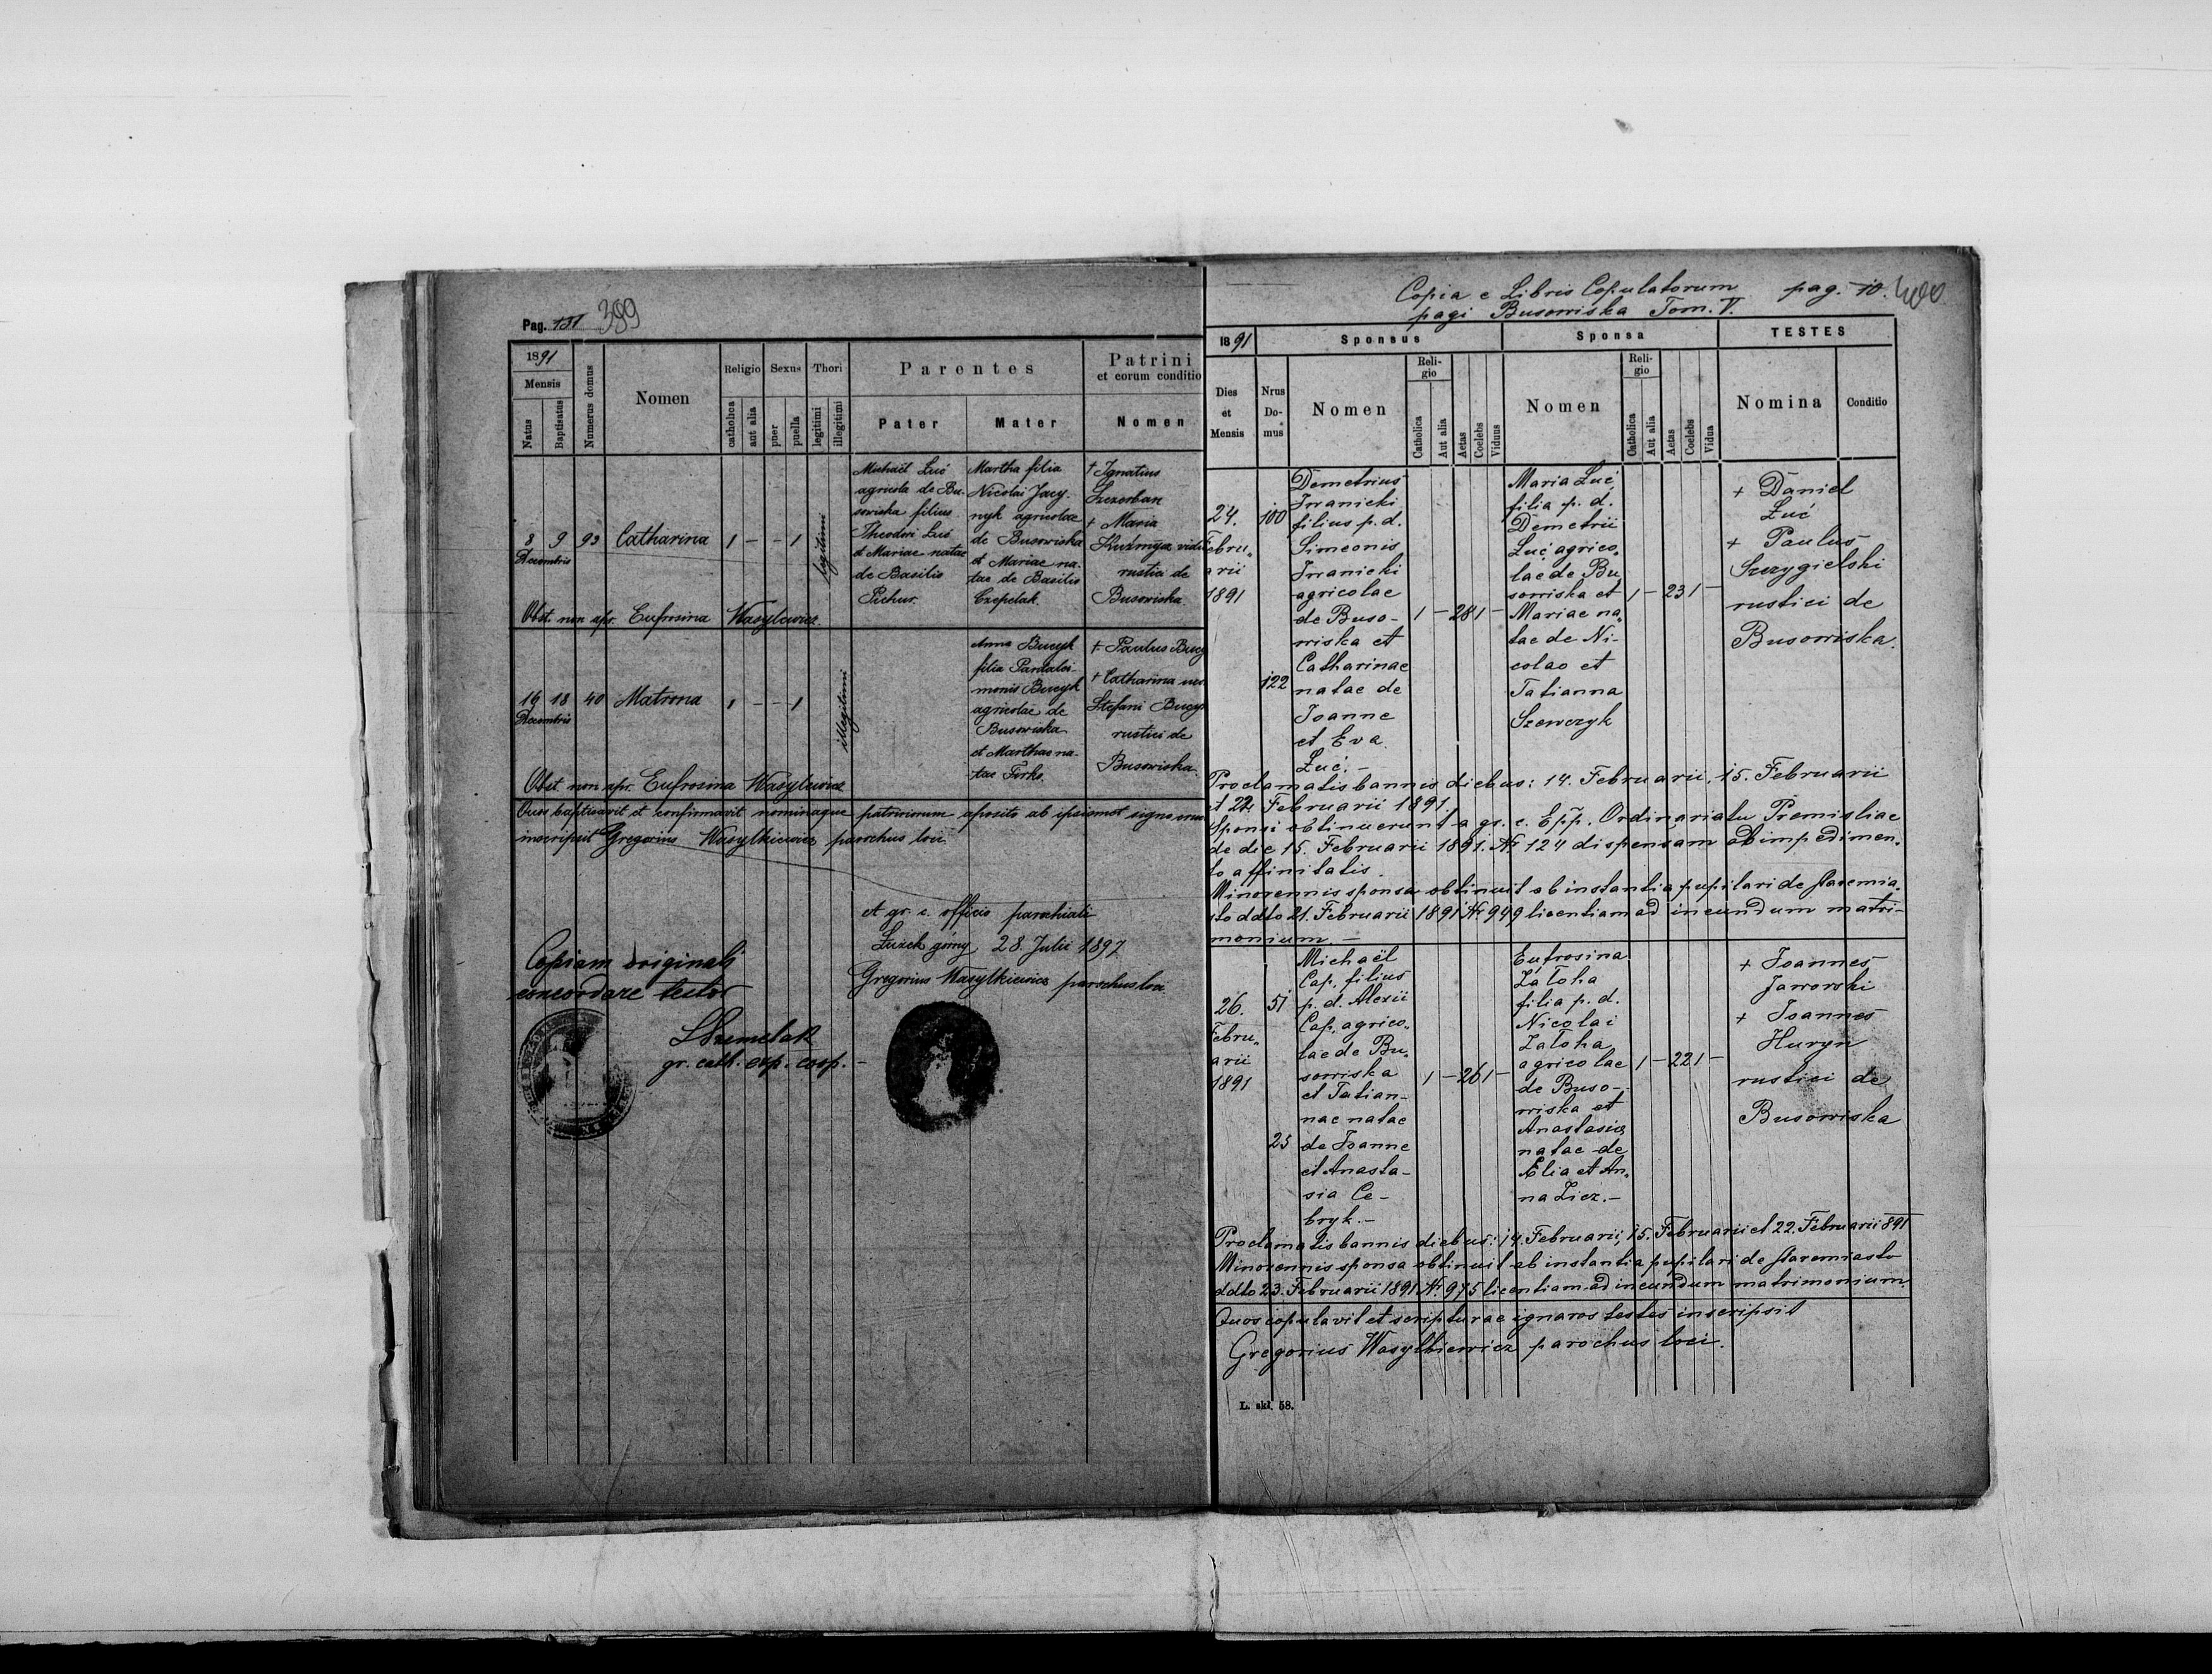 Pag. 151 399
1891
Mensis
Natus
Baptisatus
Numerus domus
Nomen
Religio
catholica
aut alia
Sexus
puer
puella
Thori
legitimi
illegitimi
Parentes
Pater
Mater
Patrini
et eorum conditio
Nomen
8 9 93 Catharina 1 - - 1 legitimi
Decembris
Michaël Łuć
agricola de Bu-
sowiska filius
Theodori Łuć
et Mariae natae
de Basilio
Pichur.
Martha filia
Nicolai Jacy-
nyk agricolae
de Busowiska
et Mariae na-
tae de Basilio
Czepelak.
+ Ignatius
Szczerban
+ Maria
Kuźmycz vidu
rustici de
Busowiska
Obst. non apr. Eufrosina Wasylewicz.
16 18 40 Matrona 1 - - 1 illegitimi
Decembris
Anna Bucyk
filia Pantalei-
monis Bucyk
agricolae de
Busowiska
et Marthae na-
tae Firko.
+ Paulus Bucy
+ Catharina uxo
Stefani Bucy
rustici de
Busowiska.
Obst. non apr. Eufrosina Wasylewicz
Quos baptisavit et confirmavit nominaque patrinorum aposito ab ipsismet signo crucis
inscripsit Gregorius Wasylkiewicz parochus loci.
A gr. c. officio parochiali
Łużek górny 28. Julii 1897
Gregorius Wasylkiewicz parochus loci
Copiam originali
concordare testor
gr. cath. exp. coop. -
Copia e Libris Copulatorum pag. 10. 400
pagi Busowiska Tom. V.
1891
Sponsus
Sponsa
TESTES
Dies
et
Mensis
Nrus
Do-
mus
Nomen
Reli-
gio
Catholica
Aut alia
Aetas
Coelebs
Viduus
Nomen
Reli-
gio
Catholica
Aut alia
Aetas
Coelebs
Vidua
Nomina
Conditio
24.
Febru-
arii
1891
100
122
Demetrius
Iwanicki
filius p. d.
Simeonis
Iwanicki
agricolae
de Buso-
wiska et
Catharinae
natae de
Joanne
et Eva
Łuć. -
1 - 28 1 -
Maria Łuć
filia p. d.
Demetrii
Łuć agrico-
lae de Bu
sowiska et
Mariae na-
tae de Ni-
colao et
Tatianna
Szewczyk
1 - 23 1 -
+ Daniel
Łuć
+ Paulus
Szczygielski
rustici de
Busowiska.
Proclamatis bannis diebus: 14. Februarii, 15. Februarii
et 22. Februarii 1891.
Sponsi obtinuerunt a gr. c. Epp. Ordinariatu Premisliae
de die 15. Februarii 1891. Nr 124 dispensam ab impedimen-
to affinitatis.
Minorennis sponsa obtinuit ab instantia pupilari de Staremia-
sto ddto 21. Februarii 1891 Nr 949 licentiam ad ineundum matri-
monium. -
26.
Febru-
arii
1891
51
25
Michaël
Cap, filius
p. d. Alexii
Cap, agrico-
lae de Bu-
sowiska
et Tatian-
nae natae
de Joanne
et Anasta-
sia Ce-
bryk. -
1 - 26 1 -
Eufrosina
Załoha
filia p. d.
Nicolai
Załoha
agricolae
de Buso-
wiska et
Anastasia
natae de
Elia et An-
na Licz. -
1 - 22 1 -
+ Joannes
Jaworski
+ Joannes
Huryn
rustici de
Busowiska
Proclamatis bannis diebus: 14. Februarii, 15. Februarii et 22. Februarii 891
Minorennis sponsa obtinuit ab instantia pupilari de Staremiasto
ddto 23. Februarii 1891 Nr. 975 licentiam ad ineundum matrimonium.
Quos copulavit et scripturae ignaros testes inscripsit
Gregorius Wasylkiewicz parochus loci.
L. skł. 58.